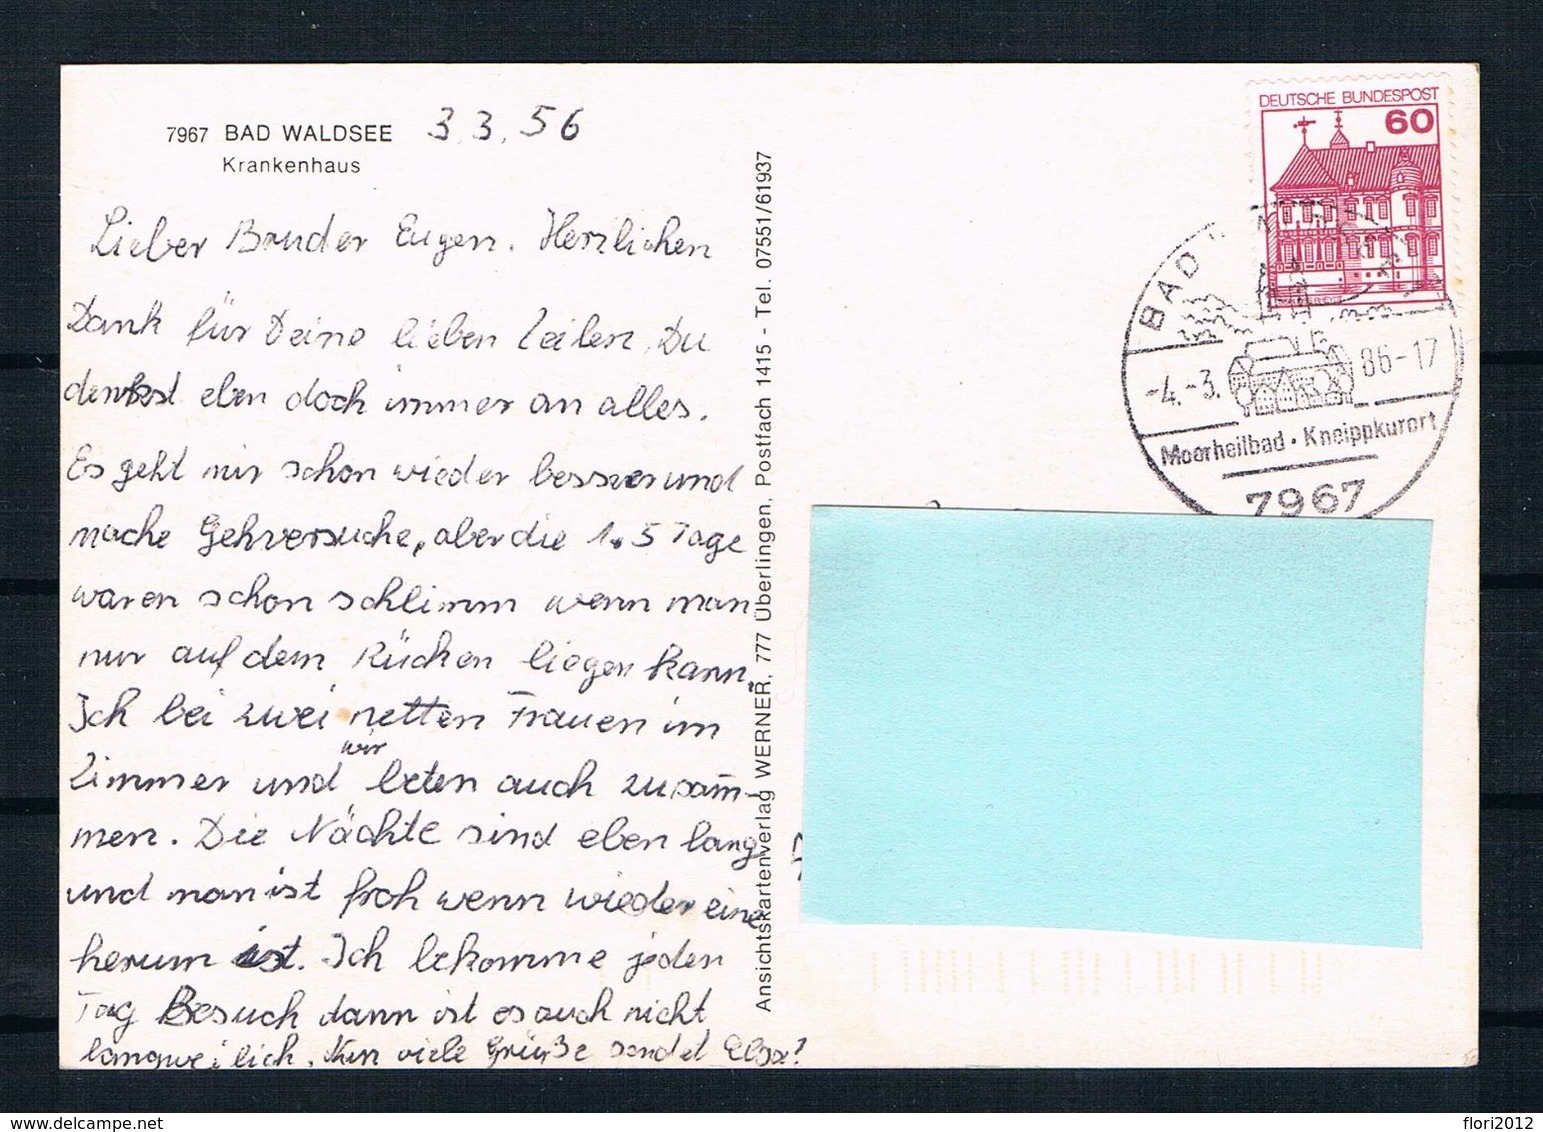 7967 BAD WALDSEE
Krankenhaus
3.3.56
Lieber Bruder Eugen. Herzlichen
Dank für Deine lieben Zeilen, Du
denkst eben doch immer an alles.
Es geht mir schon wieder besser und
mache Gehversuche, aber die 1. 5 Tage
waren schon schlimm wenn man
nur auf dem Rücken liegen kann.
Ich bei zwei netten Frauen im
Zimmer und wir beten auch zusam-
men. Die Nächte sind eben lang
und man ist froh wenn wieder eine
herum ist. Ich bekomme jeden
Tag Besuch dann ist es auch nicht
langweilich. Nun viele Grüße sendet
Ansichtskartenverlag WERNER, 777 Überlingen, Postfach 1415 - Tel. 07551/61937
DEUTSCHE BUNDESPOST
60
BAD
-4.-3. 86-17
Moorheilbad · Kneippkurort
7967
delcampe.net
flori2012